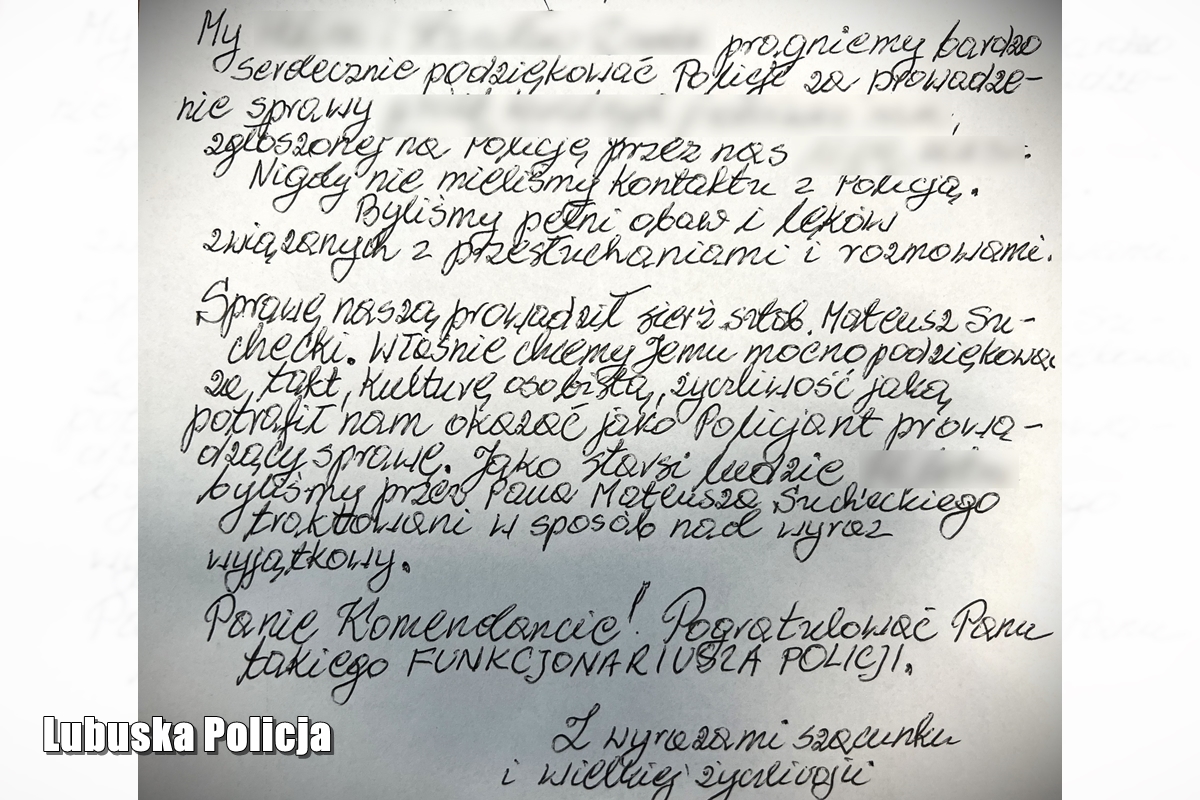 My pragniemy bardzo
serdecznie podziękować Policji za prowadze-
nie sprawy
zgłoszonej na Policję przez nas
Nigdy nie mieliśmy kontaktu z Policją.
Byliśmy pełni obaw i lęków
związanych z przesłuchaniami i rozmowami.
Sprawę naszą prowadził sierż sztab. Mateusz Su-
checki. Właśnie chcemy Jemu mocno podziękować
za takt, kulturę osobistą, życzliwość jaką
potrafił nam okazać jako Policjant prowa-
dzący sprawę. Jako starsi ludzie
byliśmy przez Pana Mateusza Sucheckiego
traktowani w sposób nad wyraz
wyjątkowy.
Panie Komendancie! Pogratulować Panu
takiego FUNKCJONARIUSZA POLICJI.
Z wyrazami szacunku
i wielkiej życzliwości
Lubuska Policja